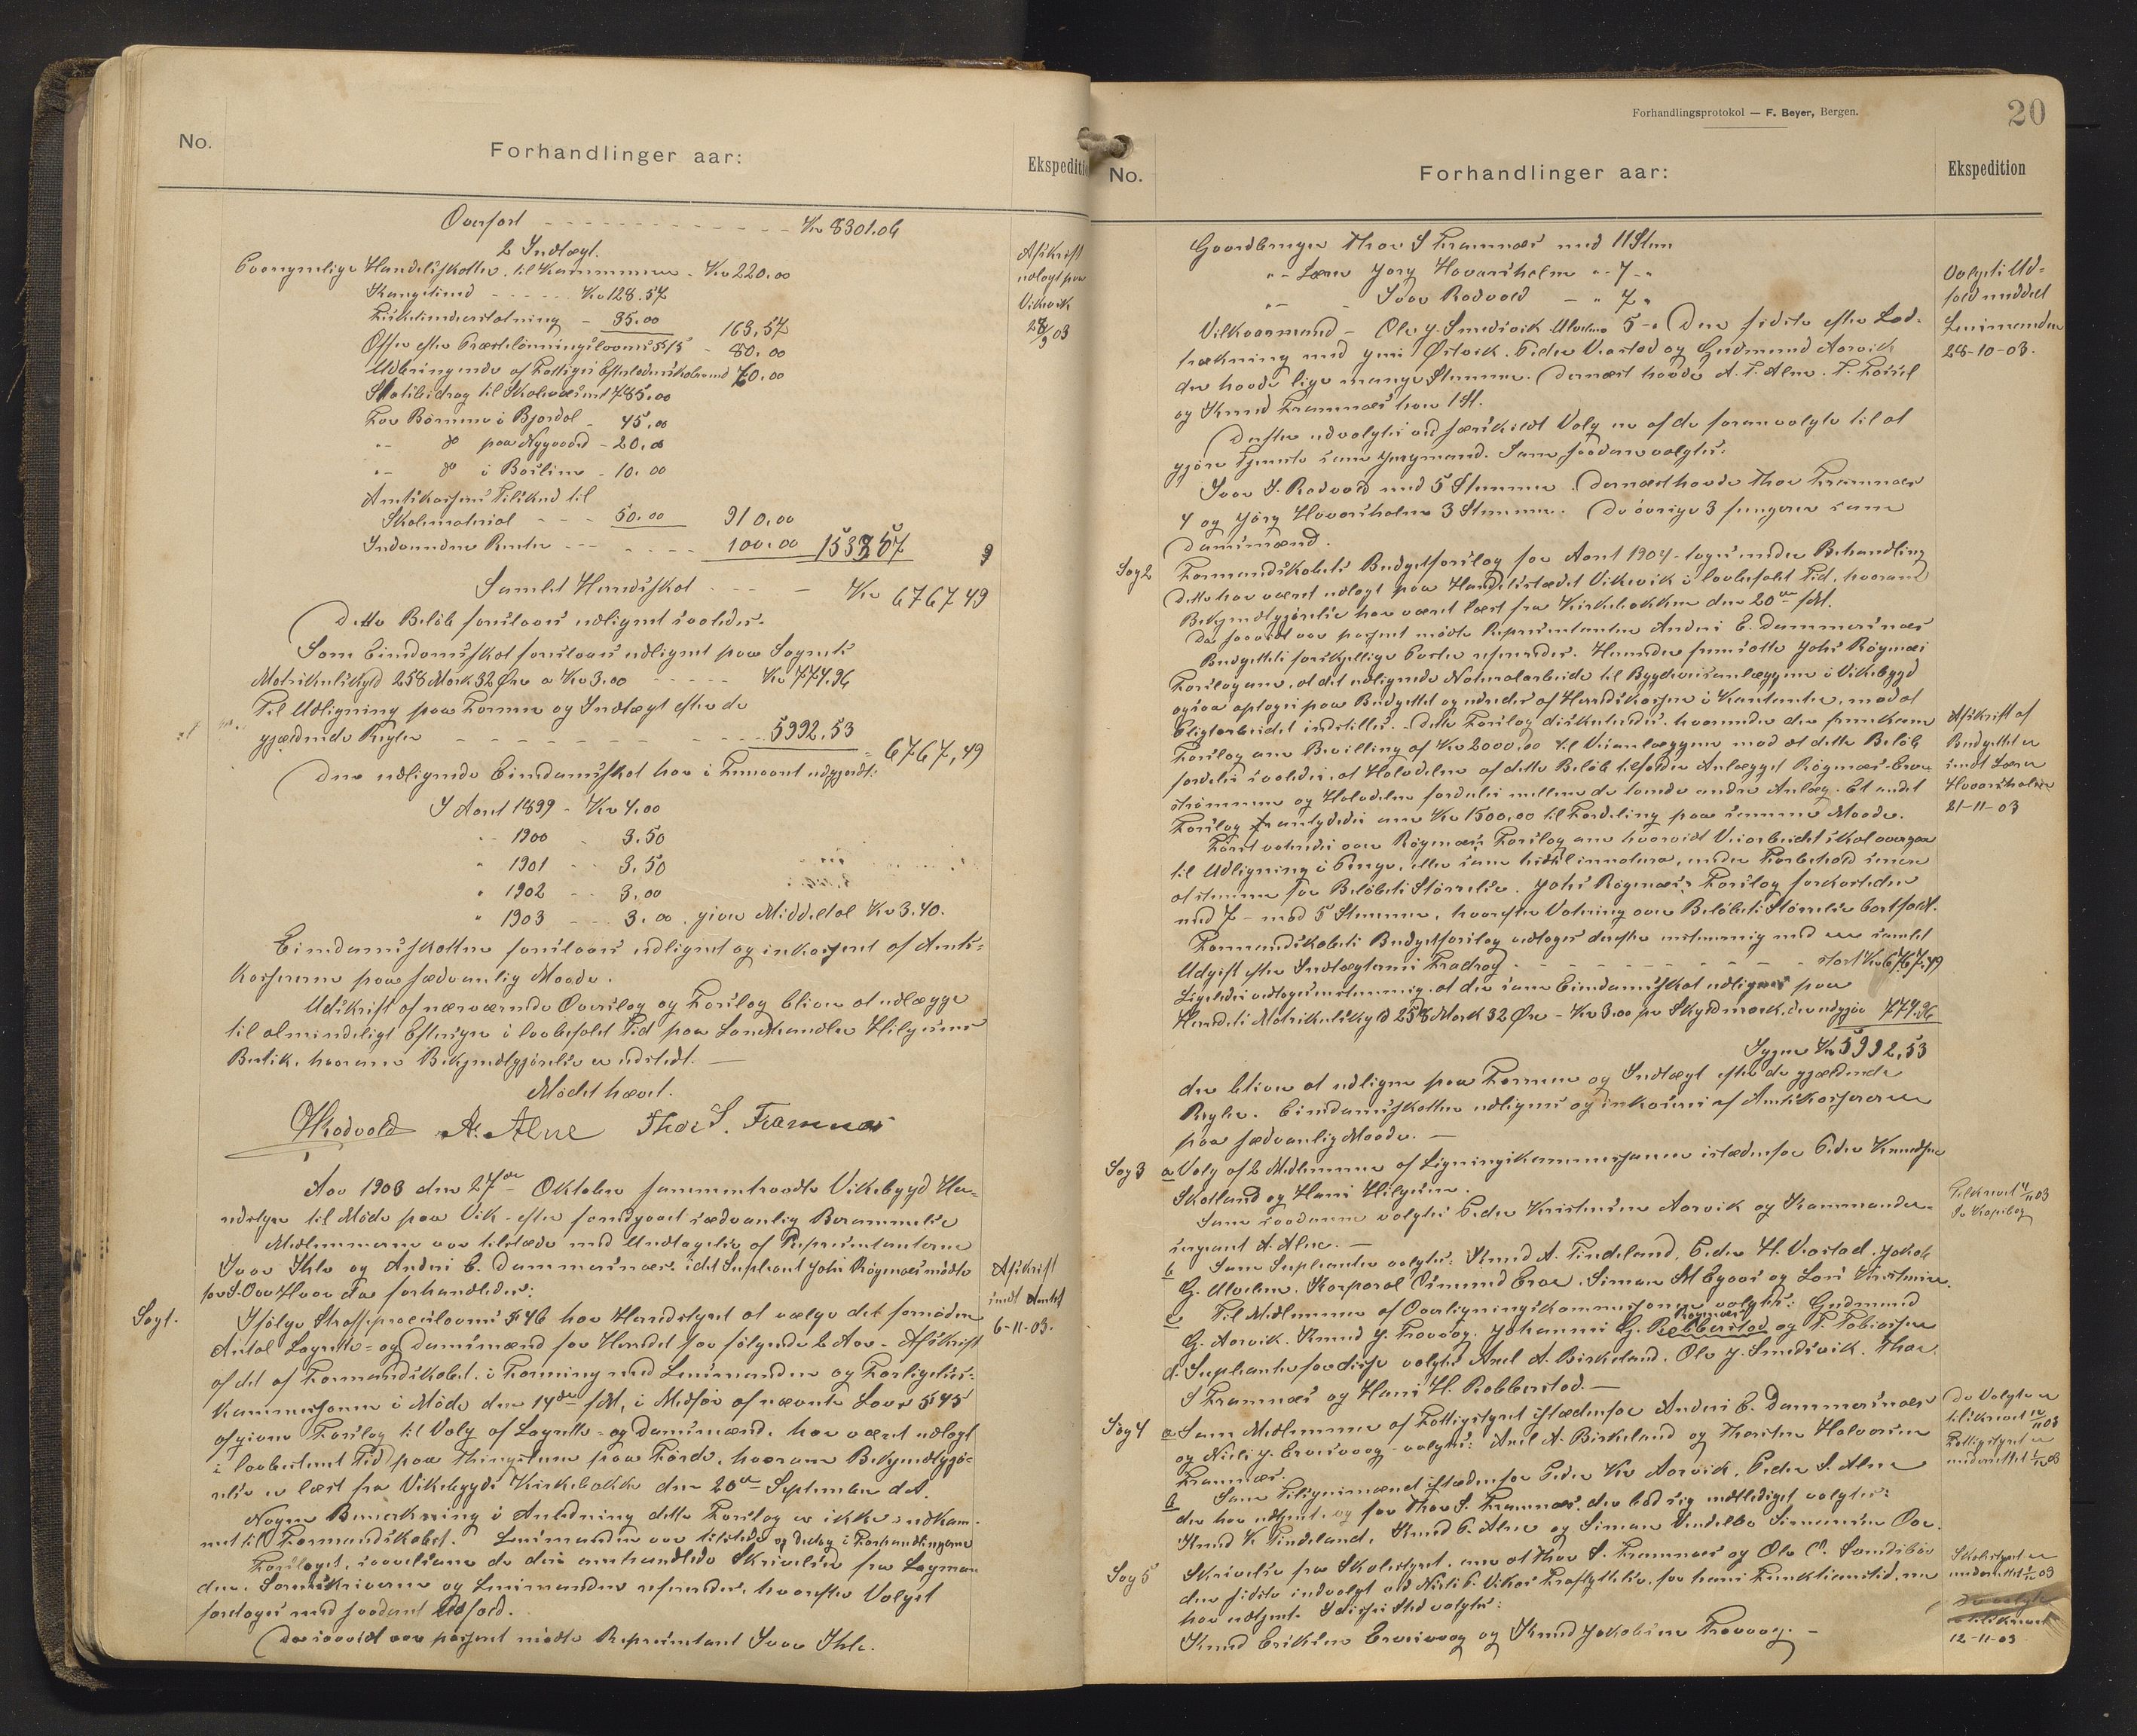 No.
Forhandlinger aar:
Ekspediti
Overført - - - Kr 8301.06
2 Indtægt.
Handelsskatter til Kommunen - Kr 220.00
- - Kr 128.57
35.00
163,57
Præstelønningsloven § 15 - 80.00
70.00
Statsbidrag til Skolevæsenet 785.00
For Børnene i Bjordal - 45.00
"- do paa Nygaard - 20.00
"- do i Børslien - 10.00
Amtskassens Tilskud til
Skolemateriel - - - 50.00 910.00
Renter - - - 100.00 1533 57
Samlet Herredsskat - - - Kr 6767 49
Dette Beløb foreslaaes udlignet saaledes.
Som Eiendomsskat foreslaaes udlignet paa Sognets
Matrikulskyld 258 Mark 32 Øre a Kr 3.00 - - - Kr 774.96
Til Udligning paa Formue og Indtægt efter de
gjældende Regler - - - 5992.53
6767,49
Den udlignede Eiendomsskat har i Femaaret udgjordt:
I Aaret 1899 - Kr 4.00
"- 1900 - 3.50
" 1901 - - 3.50
" 1902 - - 3.00
" 1903 - - 3.00. giver Middeltal Kr 3.40.
Eiendomsskatten foreslaaes udlignet og inkasseret af Amts-
kassereren paa sædvanlig Maade.
Udskrift af nærværende Overslag og Forslag bliver at udlægge
til almindeligt Eftersyn i lovbefalet Tid paa Landhandler Hilgesens
Butik, hvorom Bekjendtgjørelse er udstedt. —
Mødet hævet.
A. Alne Thor S. Framnæs
Afskrift
udlagt paa
Vikevik
Aar 1903 den 27de Oktober sammentraadte Vikebygd Her-
redstyre til Møde paa Vik - efter foregaaet sædvanlig Berammelse
Medlemmerne var tilstede med Undtagelse af Repræsentanterne
Ivar Ihle og Andrei E. Dommersnæs idet Supleant Johs Røgenæs mødte
for S. Hvor da forhandledes:
Sag 1.
Ifølge Straffeproceslovens § 46 har Herredstyret at vælge det fornødne
Antal Lagrette- og Domsmænd for Herredet for følgende 2 Aar. Afskrift
af det af Formandskabet, i Forening med Lensmanden og Forligelses-
kommissionen i Møde den 14de ds, i Medfør af nævnte Lovs § 45
afgivne Forslag til Valg af Lagrette- og Domsmænd, har været udlagt
i lovbestemt Tid paa Thingstuen paa Førde, hvorom Bekjendtgjø-
relse er læst fra Vikebygds Kirkebakke den 20de September d.A.
Nogen Bemerkning i Anledning dette Forslag er ikke indkom-
met til Formandskabet. Lensmanden var tilstede og deltog i Forhandlingerne
Forslaget, saavelsom de desi omhandlede Skrivelser fra Lagman-
den, Sorenskriveren og Lensmanden refereredes, hvorefter Valget
foretoges med saadant Udfald.
Da saavidt var passeret mødte Repræsentant Ivar Ihle.
Afskrift
sendt Amtet
6-11-03.
Forhandlingsprotokol — F. Beyer, Bergen.
20
No.
Forhandlinger aar:
Ekspedition
Gaardbruger Thor S Framnæs med 11 Stem
"- Lærer Jørg Hovarsholm "- 7 -"
"- - Ivar Rødvold - " 7 "
Vilkaarmand - Ole J. Smedsvik Ulveraas 5 -" Den sidste efter Lod-
trækning med Jens Ørsvik. Peder Vrastad og Gudmund Aarvik
der havde lige mange Stemmer. Dernæst havde A. T. Alne. T. Fossel
og Knud Framnæs hver 1 St.
Derefter udvalgtes ved særskildt Valg en af de foranvalgte til at
gjøre Tjeneste som Jurymand. Som saadan valgtes:
Ivar J. Rødvold med 5 Stemmer. Dernæst havde Thor Framnæs
4 og Jørg Hovarsholm 3 Stemmer. De øvrige 3 fungerer som
Domsmænd.
Valgets Ud-
fald meddelt
Lensmanden
28-10-03.
Sag 2
Formandskabets Budgetforslag for Aaret 1904 - toges under Behandling
Dette har været udlagt paa Handelsstedet Vikevik i lovbefalet Tid, hvorom
Bekjendtgjørelse har været læst fra Kirkebakken den 20de ds.
Da saavidt var passeret mødte Repræsentanten Andrei E. Dommersnæs
Budgettets forskjellige Poster refereredes. Herunder fremsatte Johs Røgenæs
Forslag om, at det udlignede Naturalarbeide til Bygdeveisanlæggene i Vikebygd
ogsaa optoges paa Budgettet og udredes af Herredskassen i Kontanter, mod at
Pligtarbeidet indstilles. Dette Forslag diskuteredes, hvorunder der fremkom
Forslag om Bevilling af Kr 2000.00 til Veianlæggene mod at dette Beløb
fordeles saaledes, at Halvdelen af dette Beløb tilfalder Anlægget Røgenæs-
strømmen og Halvdelen fordeles mellem de tvende andre Anlæg. Et andet
Forslag antydedes om Kr 1500,00 til Fordeling paa samme Maade.
Først votertes over Røgenæs's Forslag om hvorvidt Veiarbeidet skal overgaa
til Udligning i Penge, eller som hidtil innatura, under Forbehold senere
at stemme for Beløbets Størrelse. Johs Røgenæs's Forslag forkastedes
med 7 - mod 5 Stemmer, hvorefter Votering over Beløbets Størrelse bortfaldt.
Formandskabets Budgetforslag vedtoges derefter enstemmig med en samlet
Udgift efter Indtægternes Fradrag - - - stort Kr 6767.49
Ligeledes vedtoges enstemmig, at der som Eiendomsskat udlignes paa
Herredets Matrikulskyld 258 Mark 32 Øre - Kr 3.00 pr Skyldmark, der udgjør 774.96
Igjen Kr 5992,53
der bliver at udligne paa Formue og Indtægt efter de gjældende
Regler. Eiendomsskatten udlignes og inkasseres af Amtskassereren
paa sædvanlig Maade. —
Afskrift af
Budgettet er
sendt Lærer
Hovarsholm
21-11-03
Sag 3
a Valg af 2 Medlemmer af Ligningskommissionen istedenfor Peder Knudsen
Skotland og Hans Hilgesen.
Som saadanne valgtes Peder Kristensen Aarvik og Kommander-
sergeant A. Alne. —
b Som Supleanter valgtes: Knud A. Tindeland, Peder H. Vrastad, Jakob
G. Ulveraas, Korporal Osmund Eroe, Simon M Bygaas og Lars
c Til Medlemmer af Overligningskommissionen valgtes: Gudmund
G. Aarvik. Knud J. Frøvaag. Johannes G. Robberstad Røgenæs og T. Tobiassen
d. Supleanter for disse valgtes Axel A. Birkeland, Ole J. Smedsvik. Thor
S Framnæs og Hans H. Robberstad. —
Sag 4
a Som Medlemmer af Fattigstyret istedenfor Andrei E. Dommersnæs
og Niels J. valgtes: Axel A. Birkeland og Thorsten Halvorsen
Framnæs.
b Som Tilsynsmænd istedenfor Peder Kr Aarvik, Peder S. Alne
der har udtjent, og for Thor S. Framnæs, der bad sig undtlediget valgtes:
Knud K Tindeland, Knud P. Alne og Simon
De Valgte er
tilskrevet
Fattigstyret er
underrettet
Sag 5
Skrivelse fra Skolestyret, om at Thor S. Framnæs og Ole O. Sandsbø
den sidste indvalgt ved Niels P. Vikes Fraflyttelse, for hans Funktionstid, nu
har udtjent. I disses Sted valgtes:
Knud Eriksen og Knud Jakobsen Frøvaag. —
Skolestyret er
underrettet
12-11-03